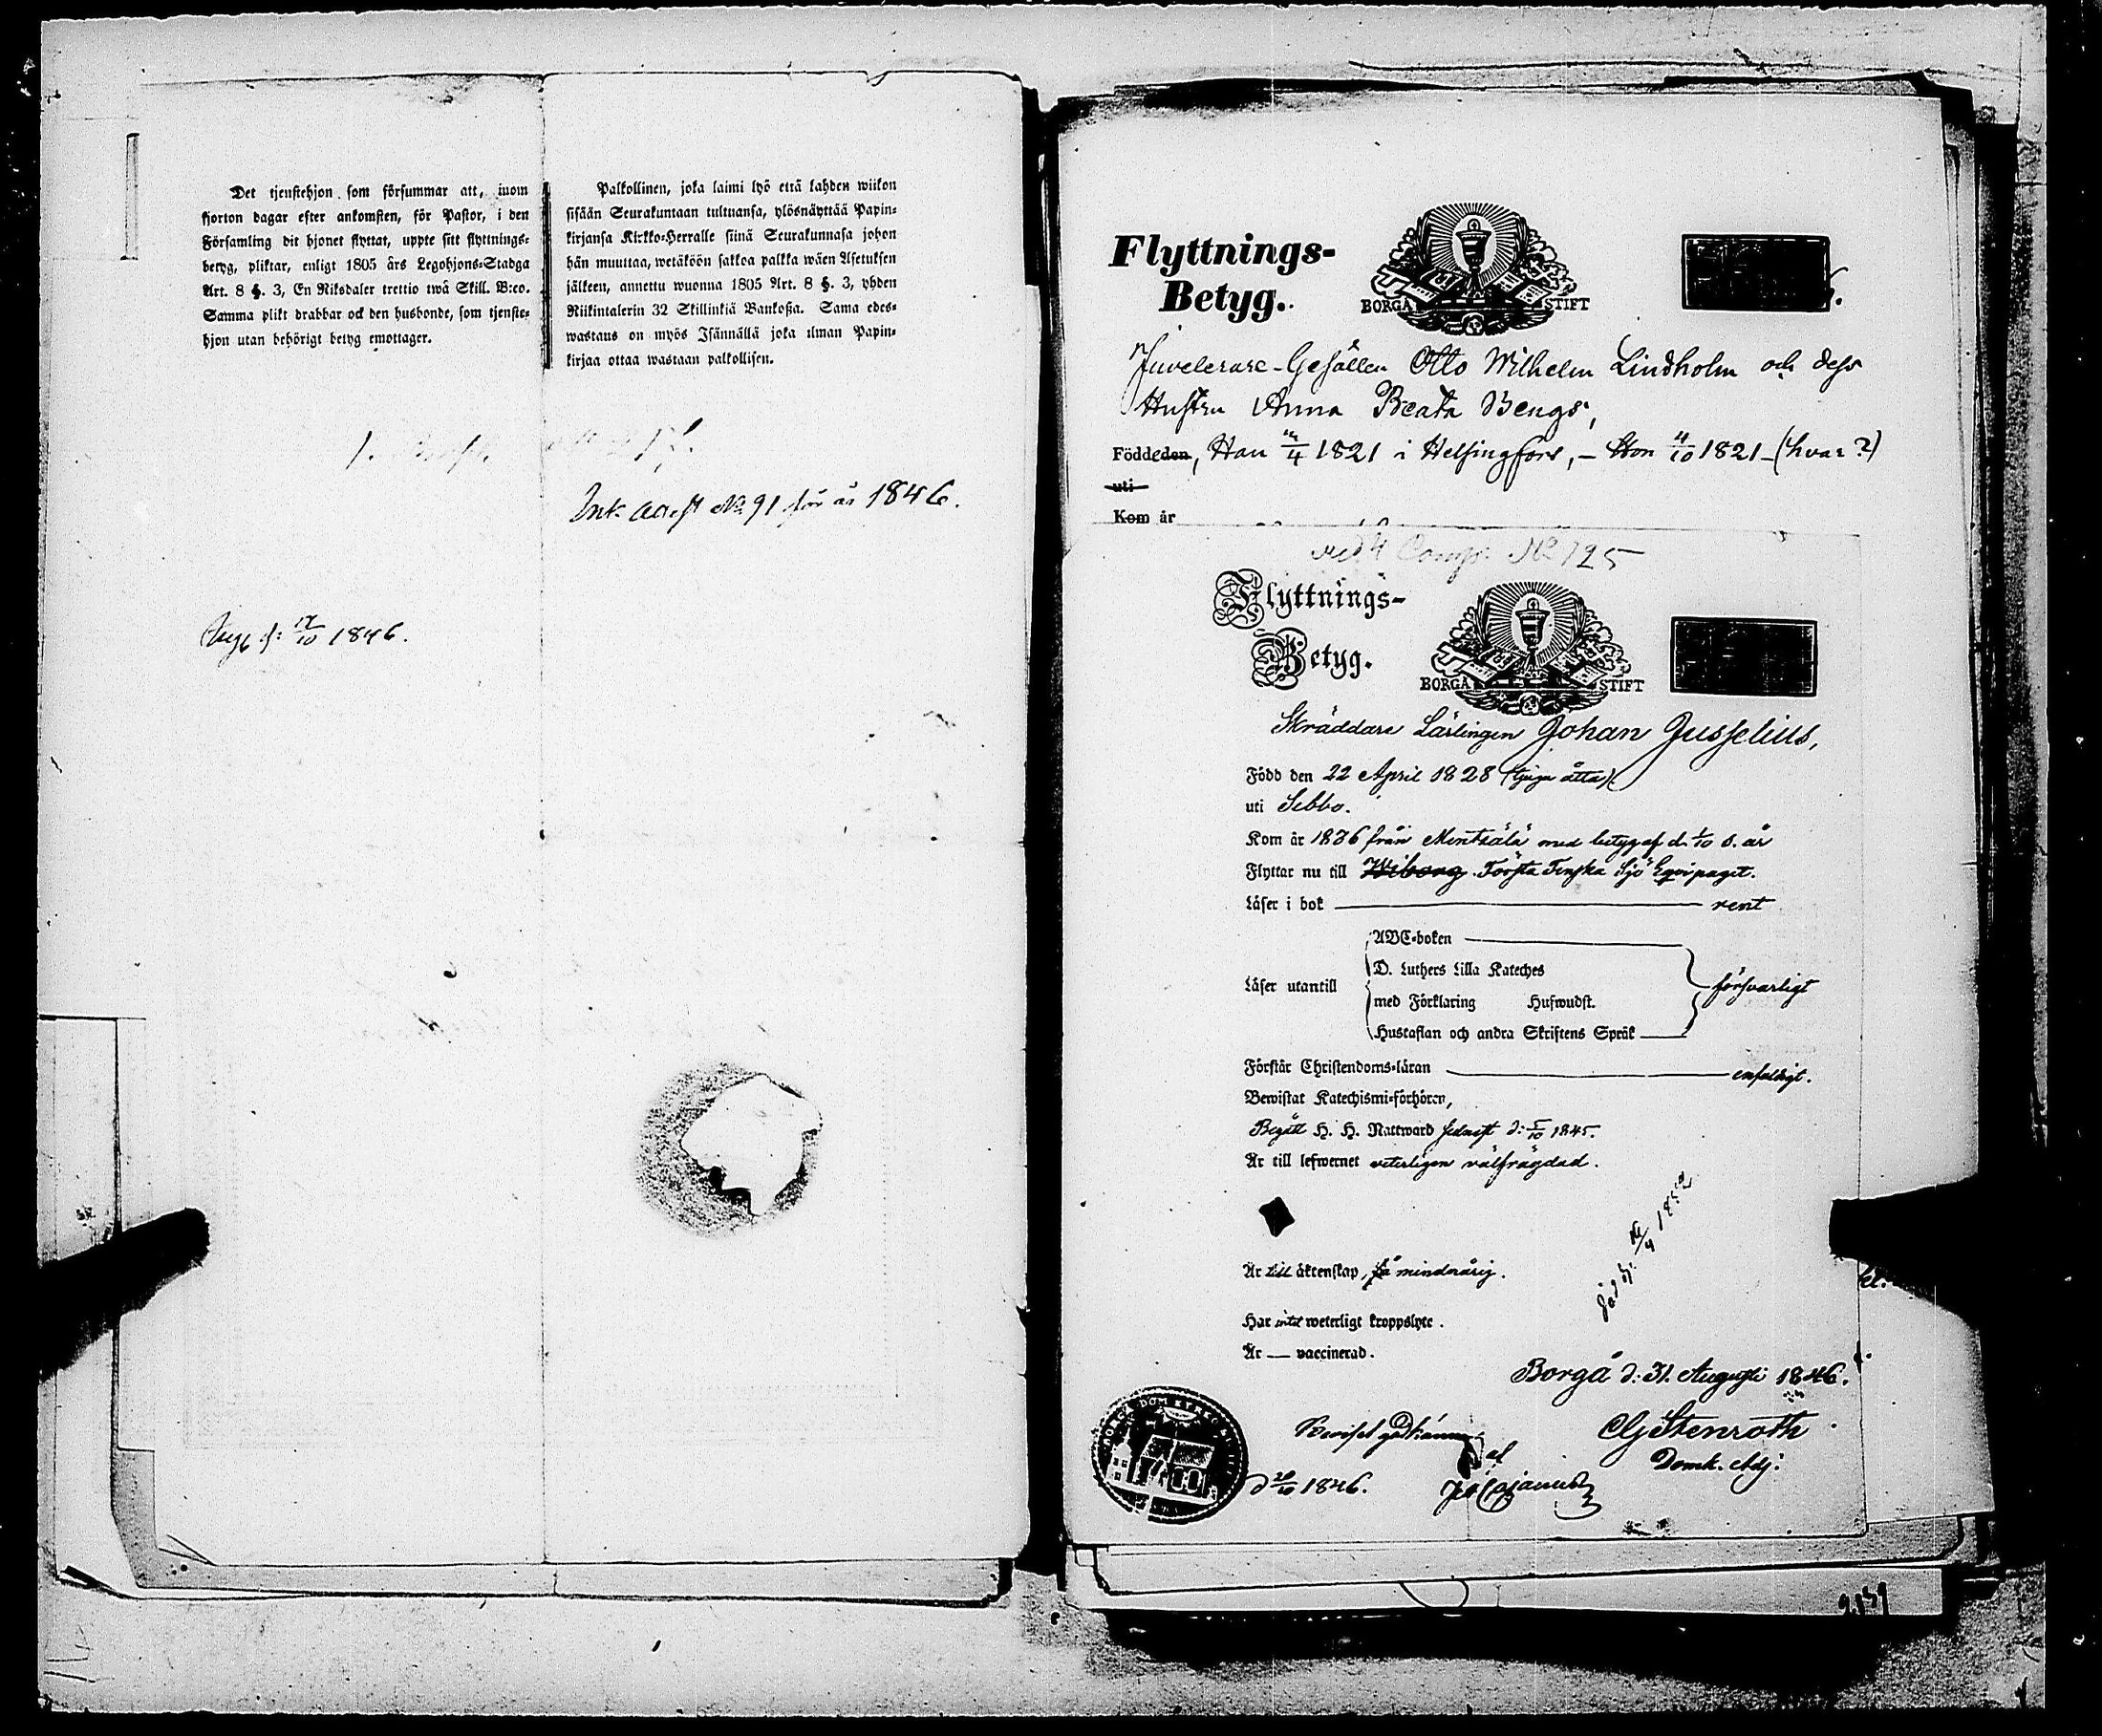 Det tjenstehjon som försummar att, inom
fjorton dagar efter ankomsten, för Pastor, i den
Församling dit hjonet flyttat, uppte sitt flyttnings-
betyg, pliktar, enligt 1805 års Legohjons-Stadga
Art. 8 §. 3, En Riksdaler trettio twå Skill. B:co.
Samma plikt drabbar ock den husbonde, som tjenste-
hjon utan behörigt betyg emottager.
Palkollinen, joka laimi lyö että kahden wiikon
sisään Seurakuntaan tultuansa, ylösnäyttää Papin-
kirjansa Kirkko-Herralle siinä Seurakunnasa johon
hän muuttaa, wetäköön sakkoa palkka wäen Asetuksen
jälkeen, annettu wuonna 1805 Art. 8 §. 3, yhden
Riikintalerin 32 Skillinkiä Bankoßa. Sama edes-
wastaus on myös Isännällä joka ilman Papin-
kirjaa ottaa wastaan palkollisen.
No 91 för år 1846.
10 1846.
Flyttnings-
Betyg.
BORGÅ STIFT
Juvelerare-Gesällen Otto Wilhelm Lindholm och dess
Hustru Anna Beata Bengs,
Födde den, Han /4 1821 i Helsingfors, – Hon 4/10 1821 – (hvar?)
uti
Kom år
Comp. No 125
Flyttnings-
Betyg.
BORGÅ STIFT
Skräddare Lärlingen Johan Jusselius,
Född den 22 April 1828 (tjugu åtta)
uti Sibbo.
Kom år 1836 från Mentsälä med betyg af d. 1/10 s. år
Flyttar nu till Wiborg. Första Finska Sjö Eqvipaget.
Läser i bok rent
Läser utantill
ABC-boken
D. Luthers Lilla Kateches
med Förklaring Hufwudst.
Hustaflan och andra Skriftens Språk
försvarligt
Förstår Christendoms-läran enfaldigt.
Bewistat Katechismi-förhören,
Begått H. H. Nattward sednast d: 5/10 1845.
Är till lefwernet veterligen välfrägdad.
Är till äktenskap, minderårig.
Har intet weterligt kroppslyte.
Är — vaccinerad.
Borgå d: 31 Augusti 1846.
Stenroth
Domk. Adj:
1846.